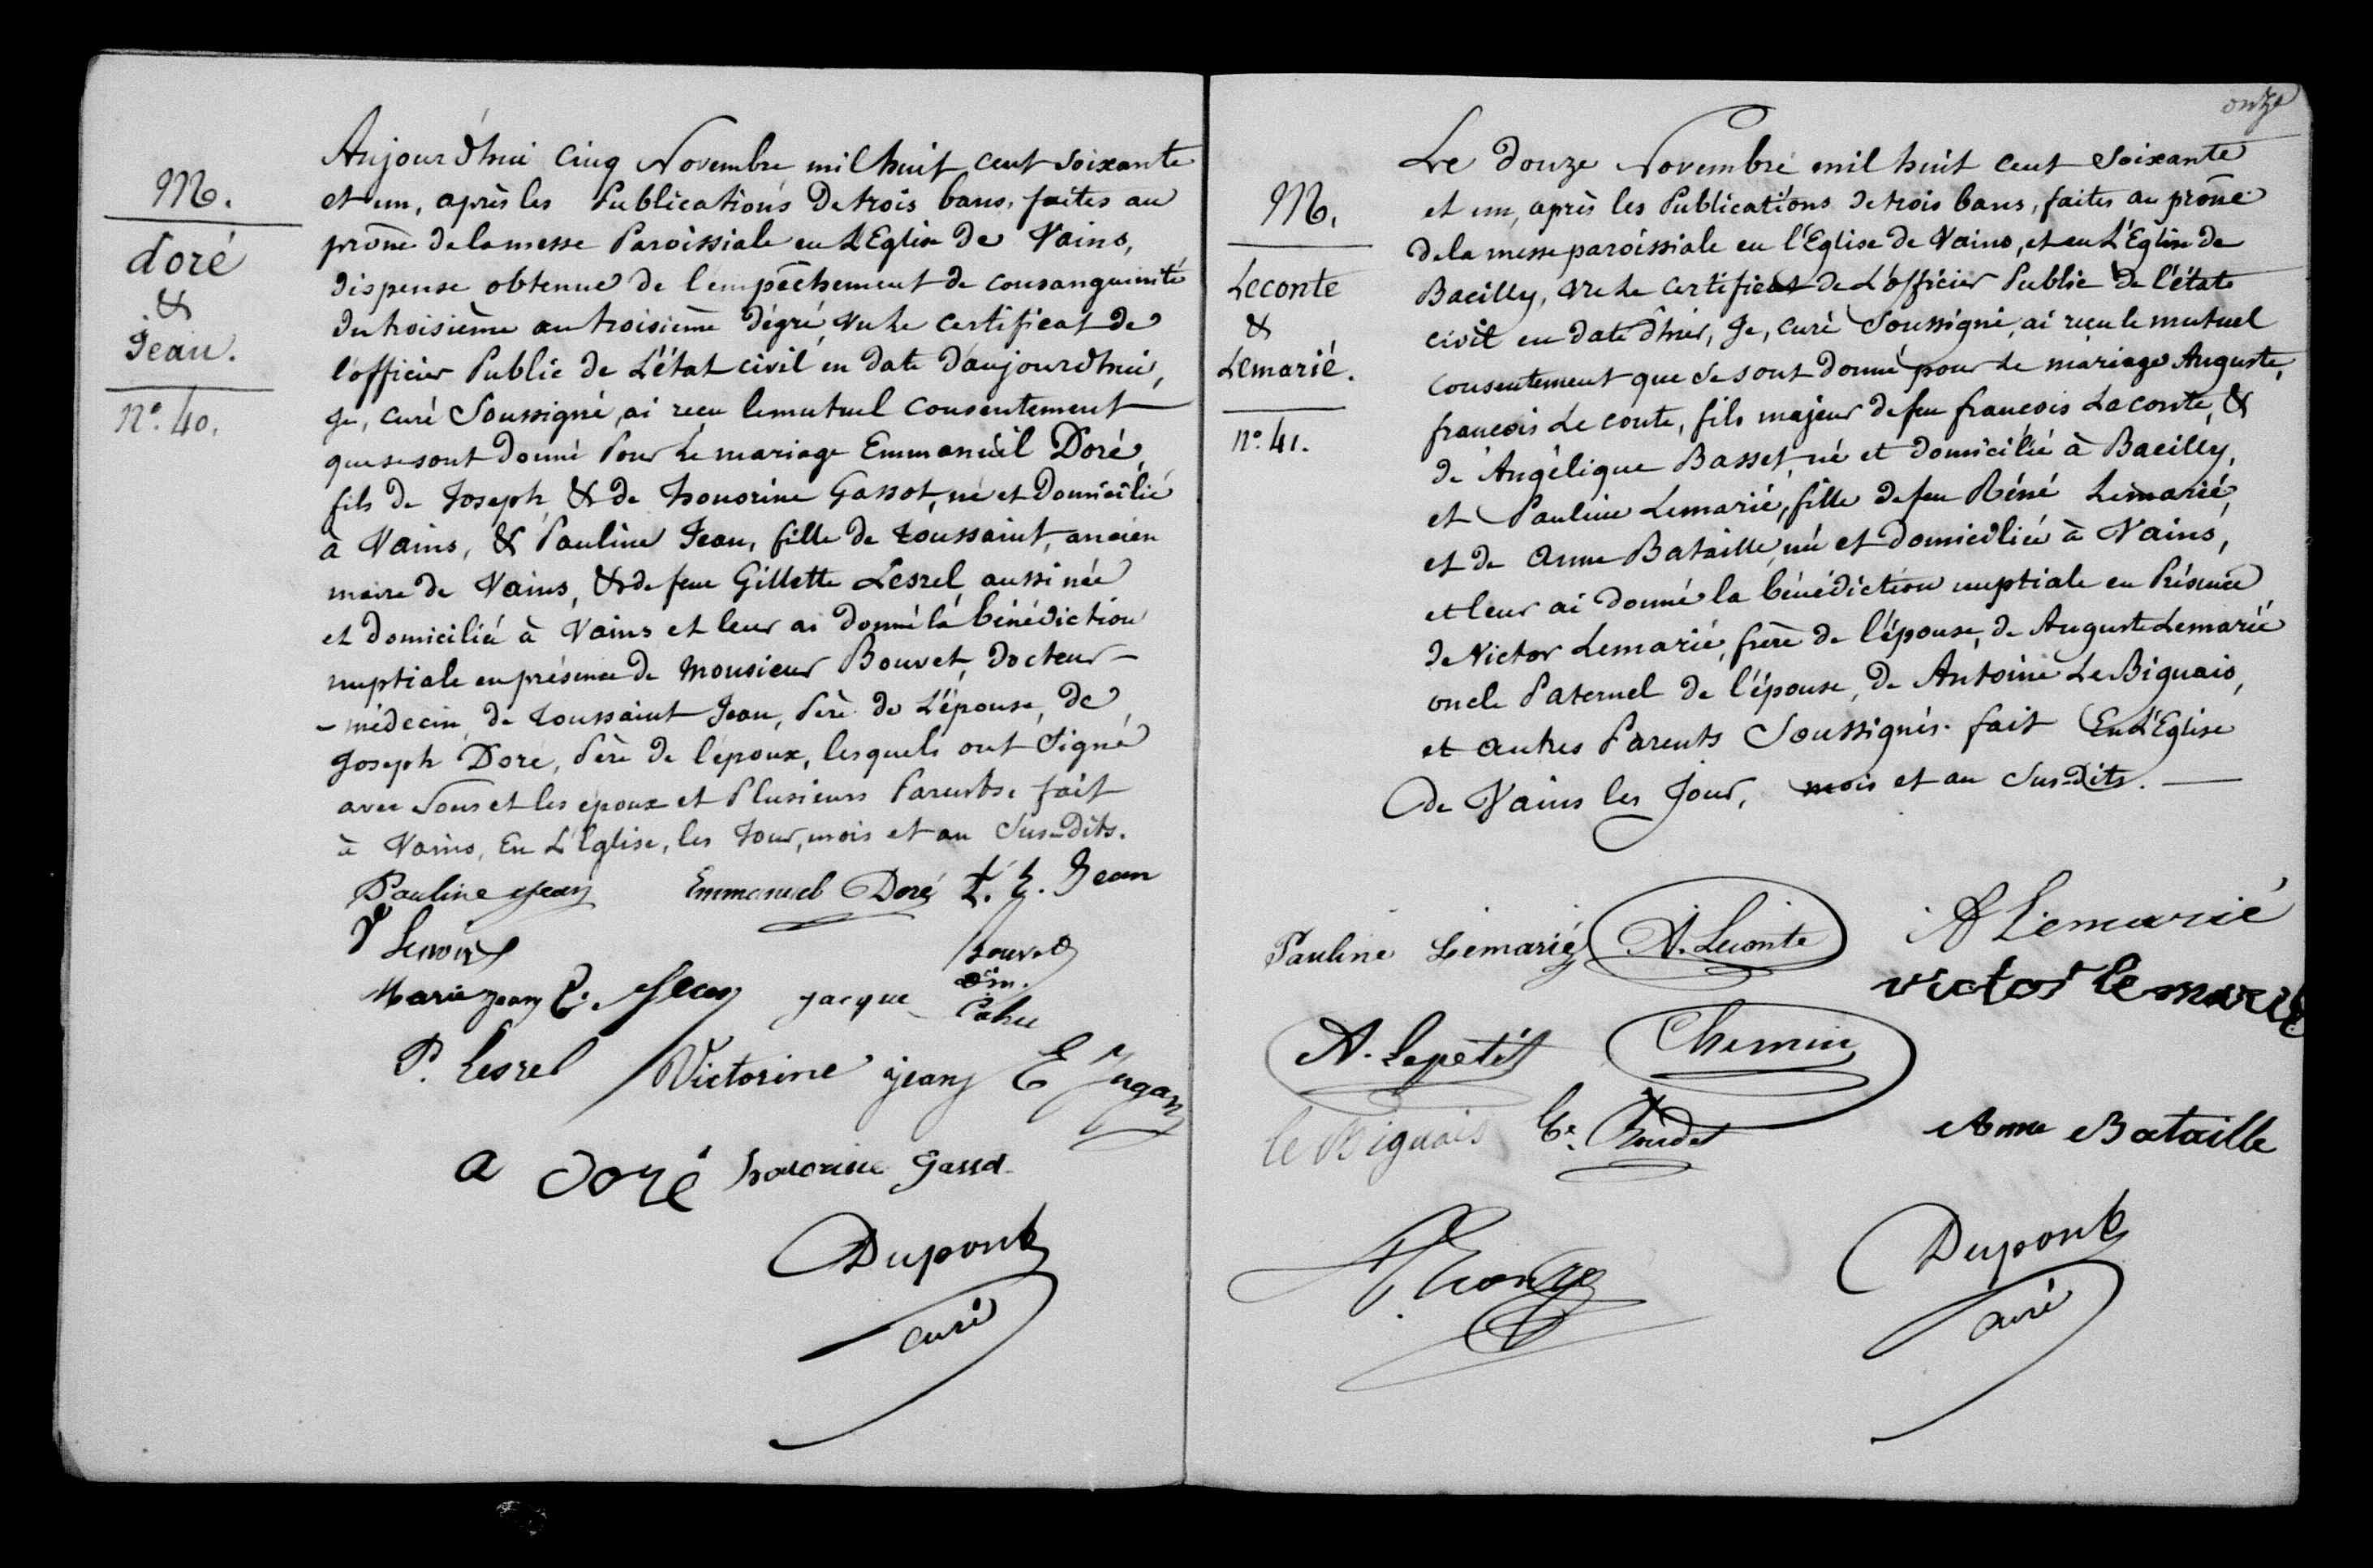 M.
doré
&
Jean.
nº. 40.
Aujourd'hui cinq Novembre mil huit cent soixante
et un, après les Publications de trois bans, faites au
prône de la messe Paroissiale en L'Eglise de Vains,
dispense obtenue de l'empêchement de consanguinité
du troisième au troisième dégré, vu le certificat de
l'officier Public de L'état civil en date d'aujourd'hui,
Je, curé Soussigné, ai reçu le mutuel consentement
que se sont donné Pour Le mariage Emmanüel Doré,
fils de Joseph, & de honorine Gassot, né et Domicilié
à Vains, & Pauline Jean, fille de toussaint, ancien
maire de Vains, & de feue Gillette Lesrel, aussi née
et domiciliée à Vains et leur ai donné la bénédiction
nuptiale en présence de Monsieur Bouvet, docteur-
-médecin, de toussaint Jean, Père de L'épouse, de
Joseph Doré, Père de l'époux, lesquels ont Signé
avec Nous et les époux et Plusieurs Parents. fait
à Vains, En L'Eglise, les Jour, mois et an Sus-dits.
Pauline Jean Emmanuel Doré t. Jean
Bouvet
Marie Jean Jean Jacque Cahu
P. Lesrel Victorine jean E Jugan
a doré honorine Gassot
Dupont
curé
onze
M.
Leconte
&
Lemarié.
nº. 41.
Le douze Novembre mil huit cent Soixante
et un, après les Publications de trois bans, faites au prône
de la messe paroissiale en l'Eglise de Vains, et en L'Eglise de
Bacilly, vu le certificat de L'officier Public de l'état
civil en date d'hier, Je, curé Soussigné, ai reçu le mutuel
consentement que Se sont donné pour le mariage Auguste,
françois Le conte, fils majeur de feu françois Le conte, &
de Angélique Basset, né et domicilié à Bacilly,
et Pauline Lemarié, fille de feu Réné Lemarié,
et de anne Bataille, née et domiciliée à Vains,
et leur ai donné la bénédiction nuptiale en Présence
de Victor Lemarié, frère de l'épouse, de Auguste Lemarié
oncle Paternel de l'épouse, de Antoine Le Biguais,
et autres Parents Soussignés. fait En L'Eglise
de Vains les Jour, mois et an Sus-Dits.
Pauline Lemarié A. Leconte A Lemarié
victor lemarié
A. Lepetit Chemin
le Biguais Anne Bataille
Dupont
curé